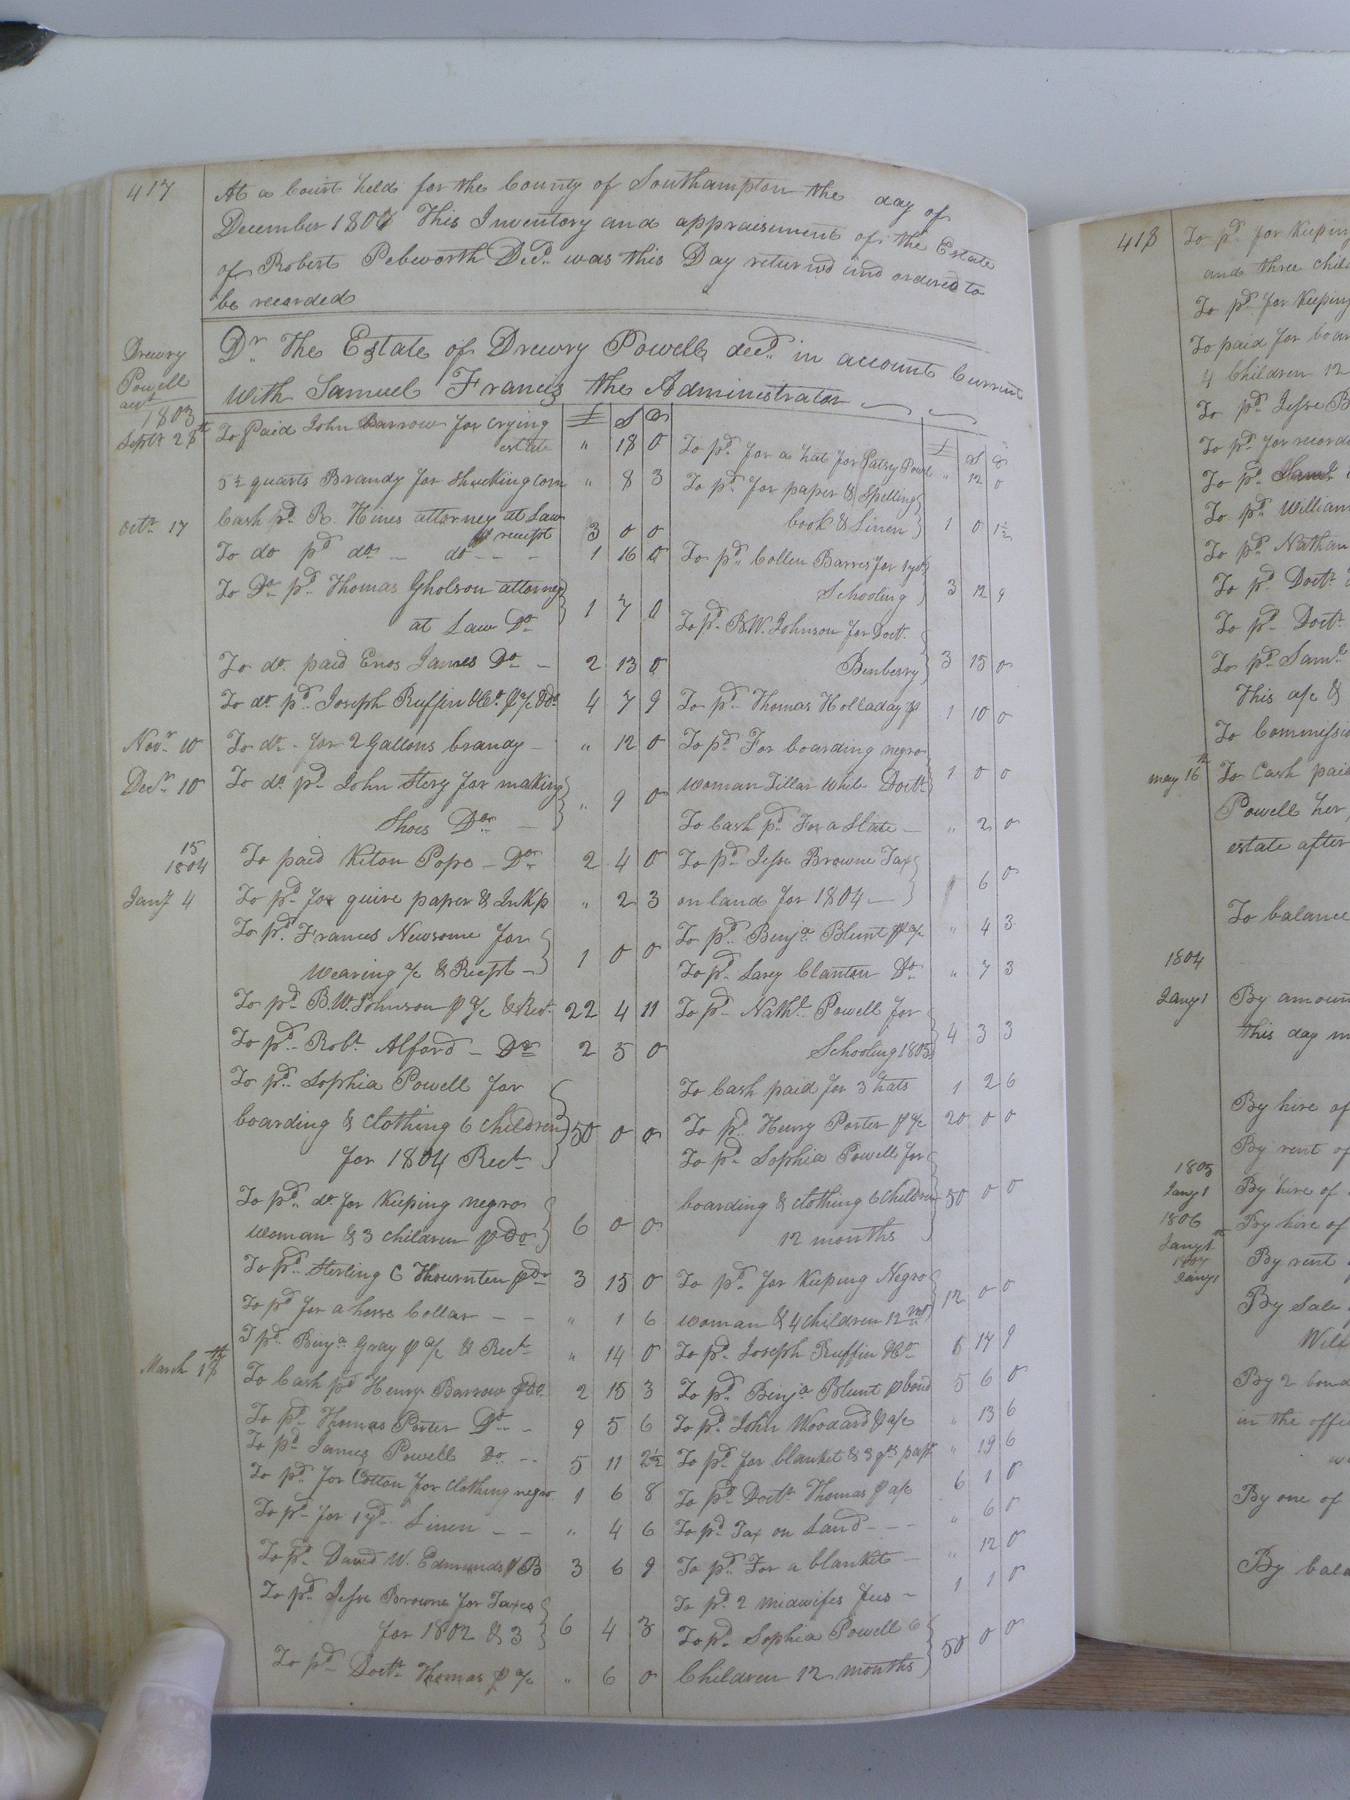 417
At a Court held for the County of Southampton the day of
December 1807 This Inventory and appraisement of the Estate
of Robert Pebworth Decd. was this Day returnd and ordered to
be recorded
Drewry
Powell
acct
Dr. The Estate of Drewry Powell decd. in account Current
With Samuel Francis the Administrator
1803
£ S D
Septr 28th To Paid John Barrow for Crying
estate " 18 0
5 quarts Brandy for Shucking Corn " 8 3
Octr. 17 Cash pd. R. Hines attorney at Law
receipt 3 0 0
To do pd do — do — — 1 16 0
To Do pd. Thomas Gholson attorney
at Law Do 1 7 0
To do. paid Enos James Do — 2 13 0
To do pd. Joseph Ruffin &Co. ⅌ a/c Do 4 7 9
Novr. 10 To do - for 2 Gallons brandy — " 12 0
Decr. 10 To do pd. John Stery for making
Shoes Do — " 9 0
15 To paid Kiton Pope — Do 2 4 0
1804
Jany 4 To pd. for quire paper & Ink p " 2 3
To pd. Frances Newsome for
Wearing a/c & Recpt — 1 0 0
To pd. B.W. Johnson ⅌ a/c & Rect. 22 4 11
To pd. Robt. Alford — Do 2 5 0
To pd. Sophia Powell for
boarding & Clothing 6 Children
for 1804 Rect. 50 0 0
To pd. do for Keeping negro
Woman & 3 children ⅌ do 6 0 0
To pd. Sterling C Thournten ⅌ do 3 15 0
To pd for a horse Collar — — " 1 6
T pd. Benja. Gray ⅌ a/c & Rect. " 14 0
March 18th To Cash pd Henry Barrow ⅌ do. 2 15 3
To pd. Thomas Porter Do — 9 5 6
To pd James Powell Do — 5 11 2½
To pd. for Cotton for Clothing negro 1 6 8
To pd. for 1 yd. Linen — — " 4 6
To pd. David W. Edmunds ⅌ B 3 6 9
To pd. Jesse Browne for Taxes
for 1802 & 3 6 4 3
To pd. Doctr. Thomas ⅌ a/c " 6 0
£ S D
To pd. for a hat for Patsy Powl " 12 0
To pd. for paper & Spelling
book & Linen 1 0 1½
To pd. Collen Barnes for 1 yds
Schooling 3 12 9
To pd. B.W. Johnson for Doct.
Benberry 3 15 0
To pd. Thomas Holladay ⅌ 1 10 0
To pd. For boarding negro
woman Tillar while Doctr. 1 0 0
To Cash pd For a Slate — " 2 0
To pd. Jesse Browne Tax
on land for 1804 — 6 0
To pd. Benja. Blunt ⅌ a/c " 4 3
To pd. Sarey Clanton Do " 7 3
To pd. Nathl. Powell for
Schooling 1805 4 3 3
To Cash paid for 3 hats 1 2 6
To pd. Henry Porter ⅌ a/c 20 0 0
To pd. Sophia Powell for
boarding & Clothing 6 Children
12 months 50 0 0
To pd. for Keeping Negro
woman & 4 Children 12 ms 12 0 0
To pd. Joseph Ruffin &Co. 6 14 9
To pd. Benja Blunt ⅌ bond 5 6 0
To pd. John Woodard ⅌ a/c " 13 6
To pd. for blanket & 3 " 19 6
To pd. Doctr. Thomas ⅌ a/c 6 1 0
To pd. Tax on Land — — " 6 0
To pd. For a blanket — " 12 0
To pd. 2 midwifes fees — 1 1 0
To pd. Sophia Powell 6
Children 12 months 50 0 0
418
To pd. for Keeping
and three chil
To pd. for Keeping
To paid for boar
4 Children 12
To pd. Jesse B
To pd. for record
To pd.
To pd. William
To pd. Nathan
To pd. Doctr.
To pd. Doctr.
To pd. Saml.
This a/c &
To Commissio
may 16th To Cash paid
Powell her
estate after
To balance
1804
Jany 1 By amoun
this day m
By hire of
By rent of
1805
Jany 1 By hire of
1806
Jany 1st By hire of
1807
Jany 1 By rent
By Sale
Will
By 2 bond
in the offi
By one of
By bala